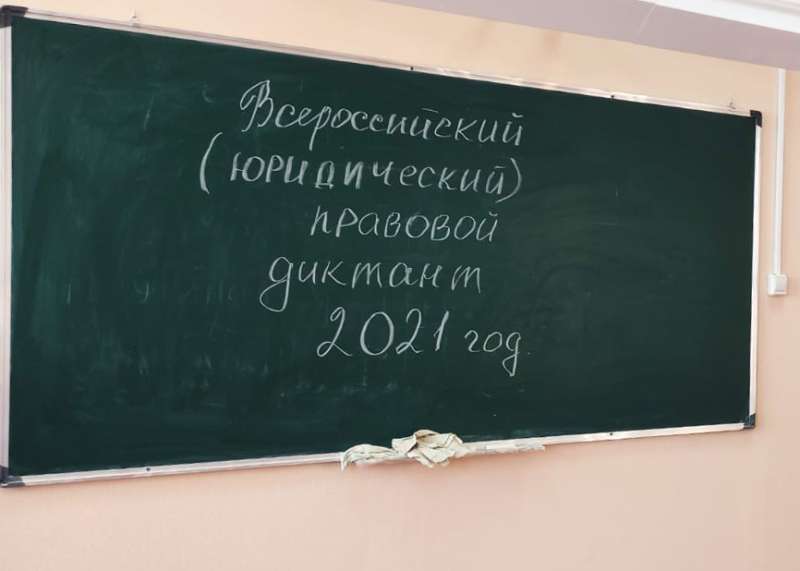 Всероссийский
(юридический)
правовой
диктант
2021 год.